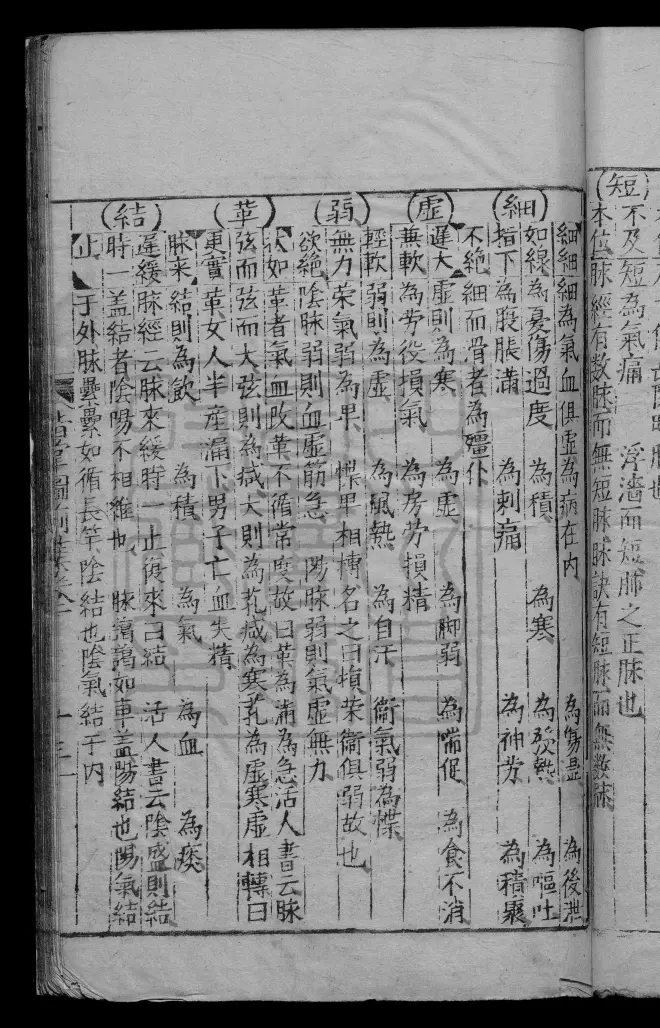 (短)
不及 短為氣痛 浮濇而短肺之正脉也
本位 脉經有数脉而無短脉脉訣有短脉而無数脉
(細)
細細細為氣血俱虛為病在内 為傷濕 為後泄
如線為憂傷過度 為積 為寒 為發熱 為嘔吐
指下為腹脹滿 為刺痛 為神勞 為積聚
不絶細而滑者為殭仆
(虛)
遲大虛則為寒 為虛 為脚弱 為喘促 為食不消
兼軟為勞役損氣 為房勞損精
(弱)
輕軟弱則為虛 為風熱 為自汗 衛氣弱為惵
無力榮氣弱為卑 惵卑相搏名之曰損荣衛俱弱故也
欲絶陰脉弱則血虛筋急 陽脉弱則氣虛無力
(革)
大如革者氣血改革不循常度故曰革為滿為急活人書云脉
弦而弦而大弦則為减大則為芤减為寒芤為虛寒虛相轉曰
更實革女人半産漏下男子亡血失精
(結)
脉来結則為飲 為積 為氣 為血 為痰
遲緩脉經云脉来緩時一止復來曰結 活人書云陰盛則結
時一蓋結者陰陽不相雜也 脉藹藹如車蓋陽結也陽氣結
止 于外脉纍纍如循長竿陰結也陰氣結于内